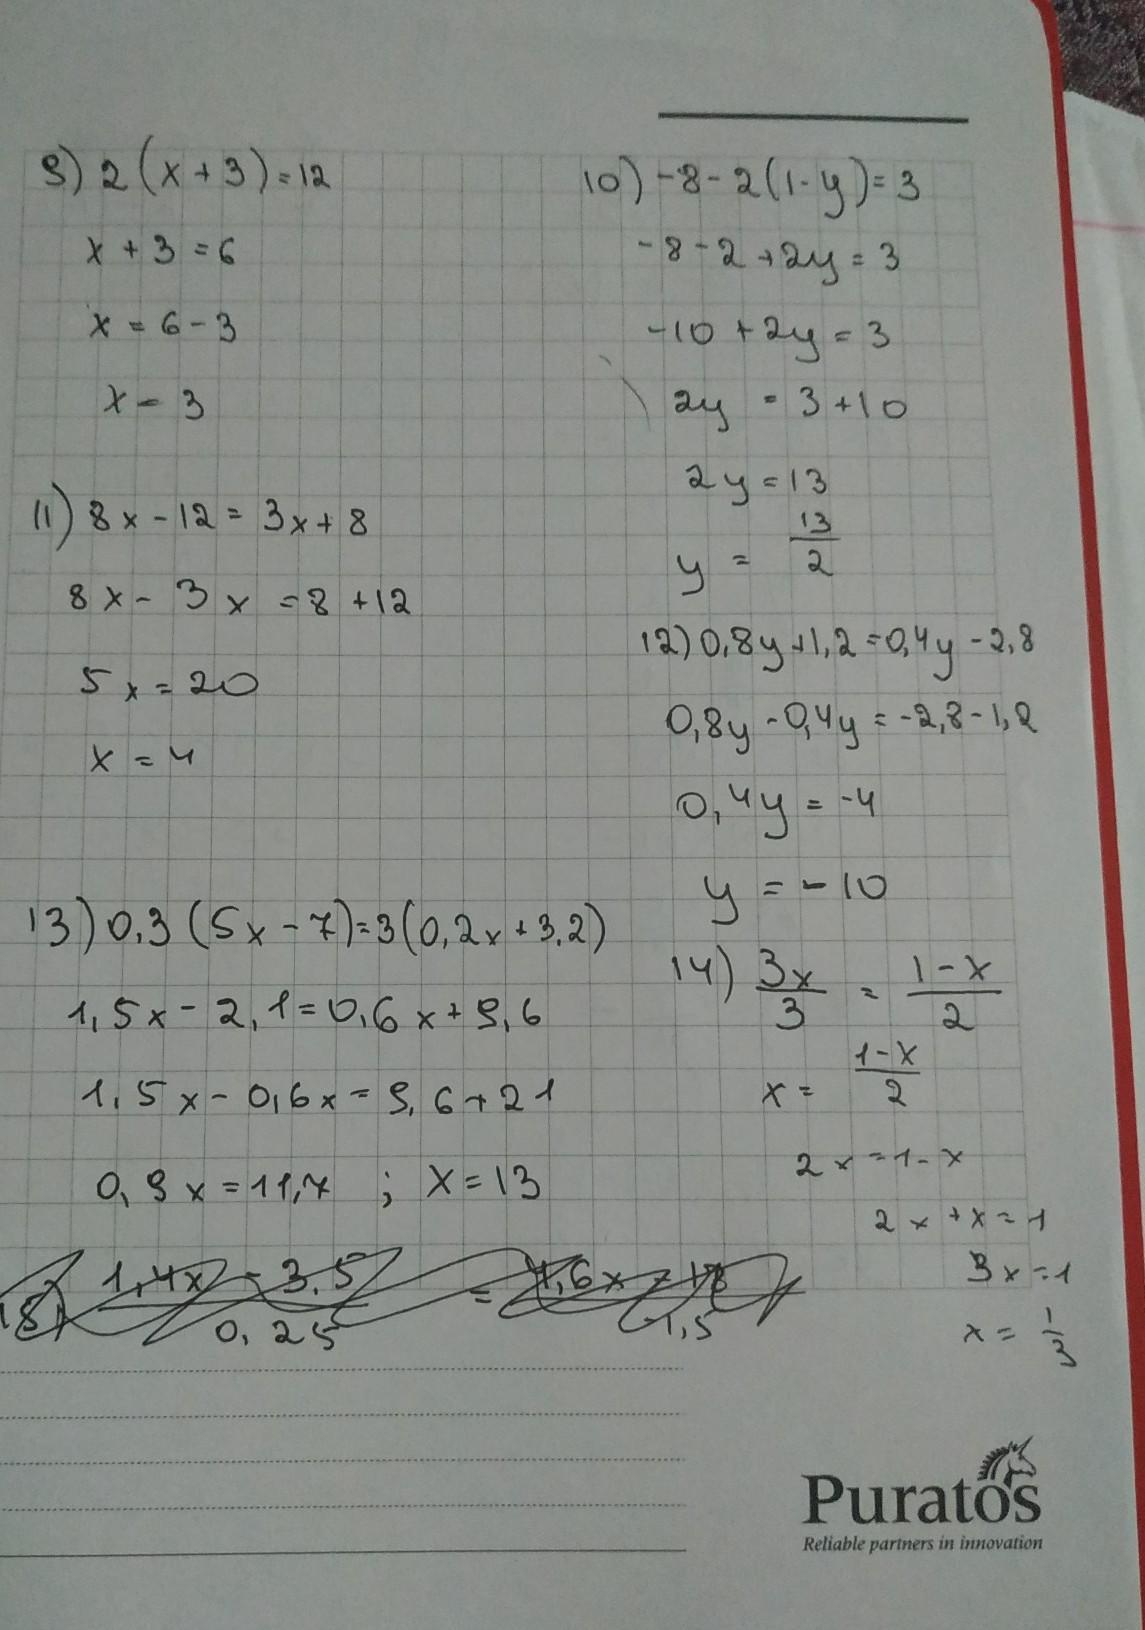 9) 2(x+3)=12
x+3=6
x=6-3
x=3
10) -8-2(1-y)=3
-8-2+2y=3
-10+2y=3
2y=3+10
2y=13
y=13/2
11) 8x-12=3x+8
8x-3x=8+12
5x=20
x=4
12) 0,8y+1,2=0,4y-2,8
0,8y-0,4y=-2,8-1,2
0,4y=-4
y=-10
13) 0,3(5x-7)=3(0,2x+3,2)
1,5x-2,1=0,6x+9,6
1,5x-0,6x=9,6+21
0,9x=11,7 ; x=13
14) 3x/3=1-x/2
x=1-x/2
2x=1-x
2x+x=1
3x=1
x=1/3
1,4x-3,5/0,25=
Puratos
Reliable partners in innovation